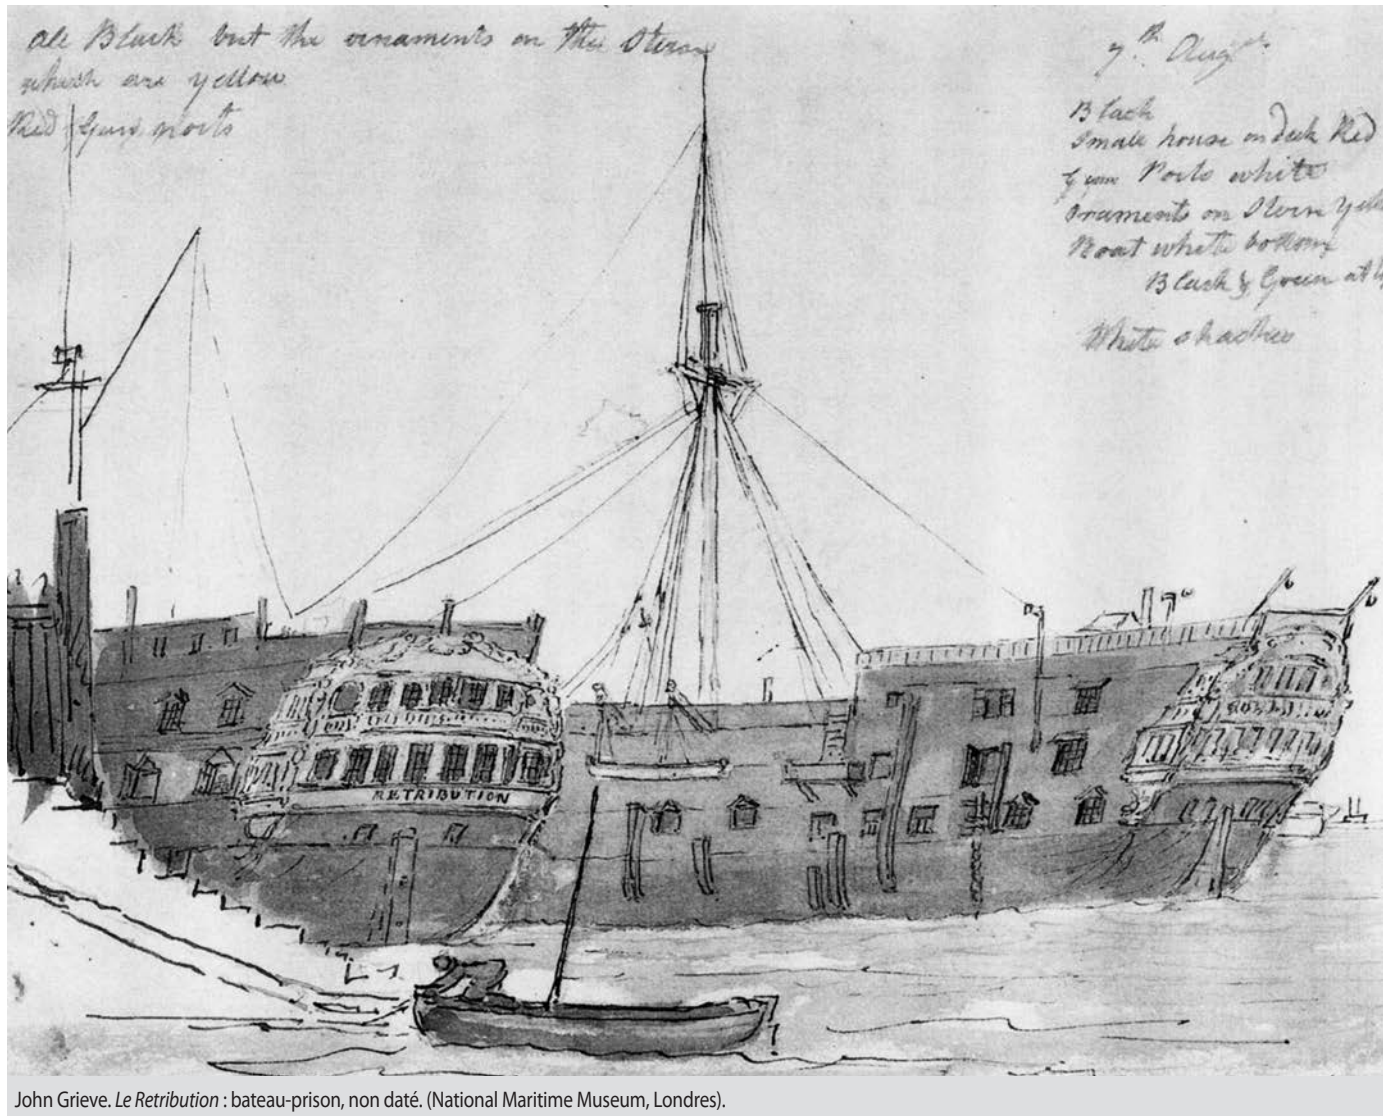 All Black but the ornaments on the Stern
which are yellow
Red Gun ports
7th Augst
Black
Small house on deck Red
Gun Ports white
ornaments on Stern Yell
Boat white bottom
Black & Green at
White
RETRIBUTION
John Grieve. Le Retribution : bateau-prison, non daté. (National Maritime Museum, Londres).